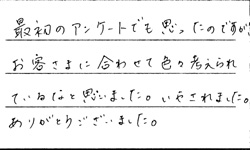 最初のアンケートでも思ったのですが
お客さまに合わせて色々考えられ
ているなと思いました。いやされました。
ありがとうございました。